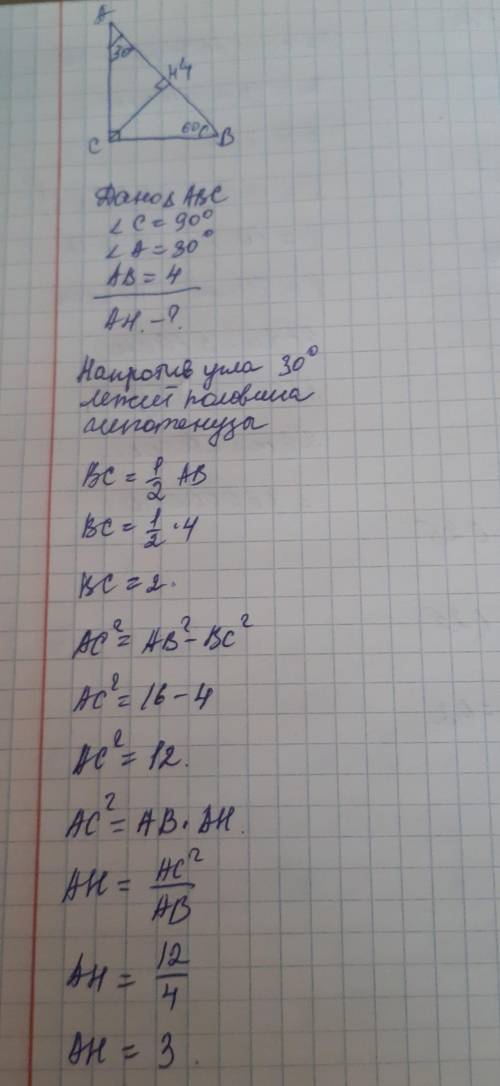 A
30°
H 4
60°
C
B
Дано Δ ABC
∠ C = 90°
∠ A = 30°
AB = 4
AH. - ?.
Напротив угла 30°
лежит половина
гипотенузы
BC = 1/2 AB
BC = 1/2 · 4
BC = 2.
AC² = AB² - BC²
AC² = 16 - 4
AC² = 12.
AC² = AB · AH.
AH = AC²/AB
AH = 12/4
AH = 3.